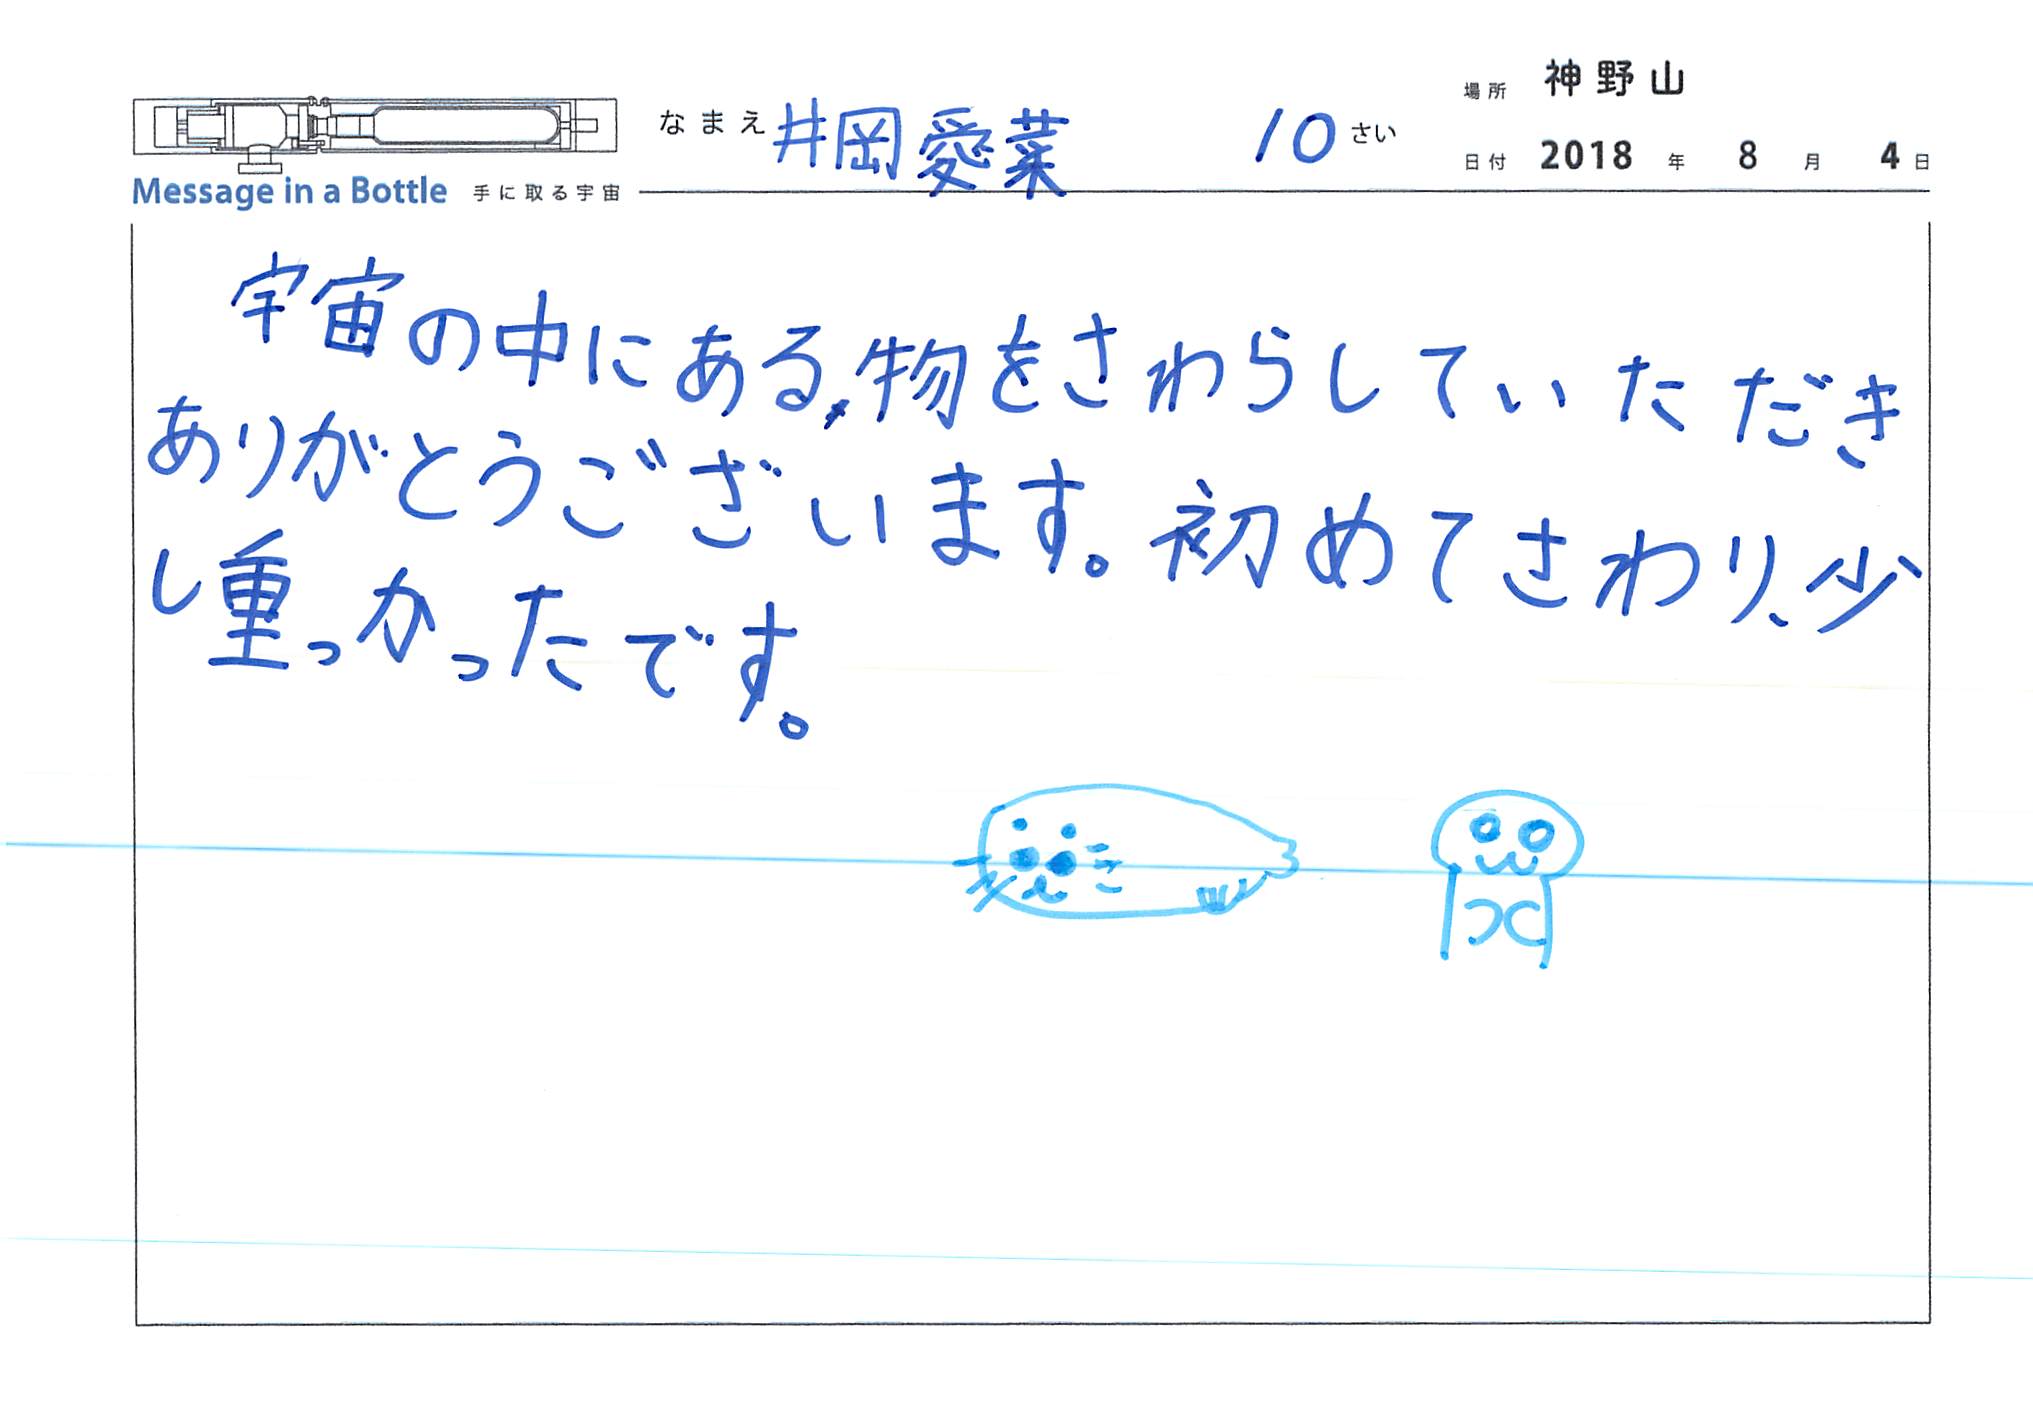 場所 神野山
なまえ 井岡愛菜 10さい
日付 2018年 8月 4日
Message in a Bottle 手に取る宇宙
宇宙の中にある物をさわらしていただき
ありがとうございます。初めてさわり、少
し重っかったです。